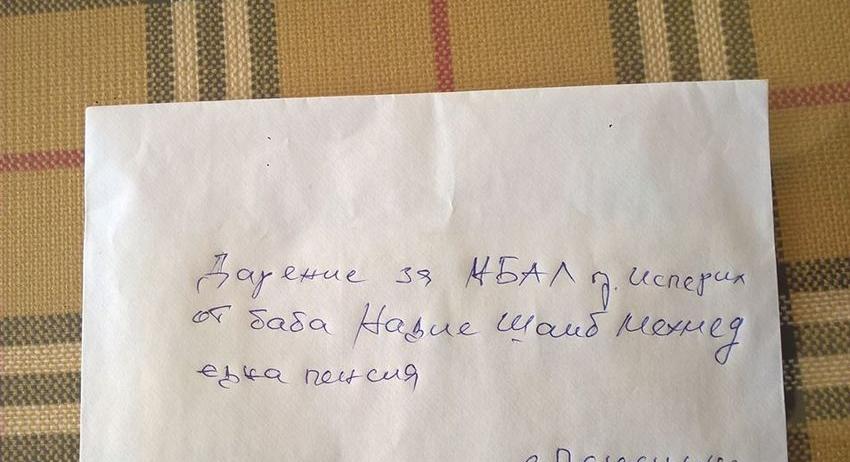 Дарение за МБАЛ гр. Исперих
от баба Надие Шаиб Мехмед
една пенсия